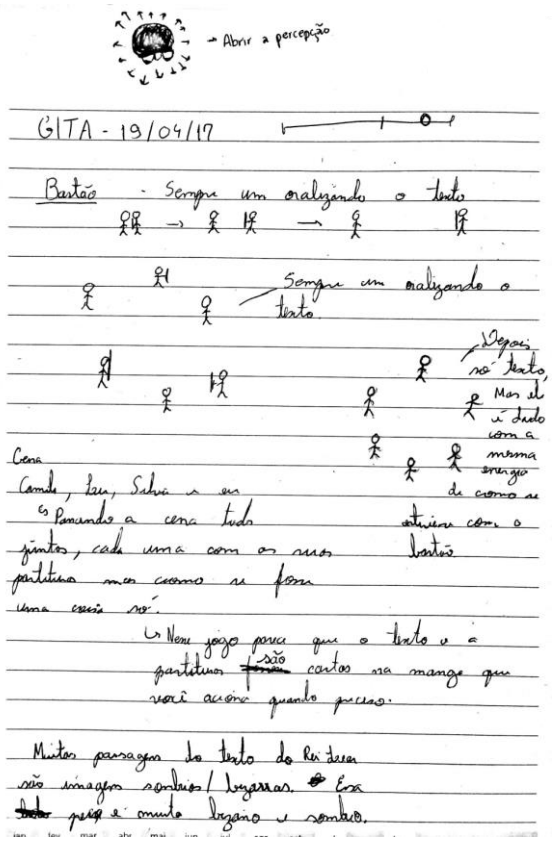 → Abrir a percepção
GITA - 19/04/17
Bastão - Sempre um oralizando o texto
Sempre um oralizando o
texto.
Depois
só texto,
Mas el
é dado
com a
mesma
energia
de como se
estivesse com o
bastão
Cena
Camila, Lau, Silvia e eu
↳ Passando a cena tudo
juntos, cada uma com as suas
partituras mas como se fosse
uma coisa só.
↳ Nesse jogo parece que o texto e a
partituras são cartas na manga que
você aciona quando preciso.
Muitas passagens do texto do Rei Lear
são imagens sombrias/bizarras. Essa
peça é muito bizarro e sombrio.
jan fev mar abr mai jun jul